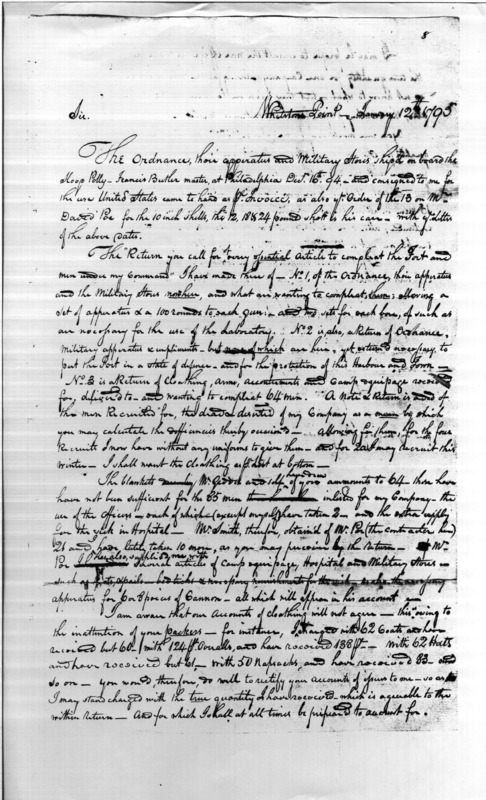 8
Sir. Whitstone Point January 12th 1795
The Ordnance, their apparatus and Military Stores shipt on board the
Sloop Polly - Francis Butler master, at Philadelphia Decr. 16th. 94 - and consigned to me for
the use United States came to hand as Pr. Invoice, as also yr. Order of the 13 on Mr.
David Poe for the 10 inch shells, the 12, 18 & 24 pound shott in his care - with yr. letter
of the above date.
The Return you call for "every essential Article to compleat the Fort and
men under my Command" I have made three of - No. 1, of the Ordnance, their apparatus
and the Military Stores now here, and what are wanting to compleat them; allowing a
set of apparatus & a 100 rounds to each gun; and two sets for each bore, of such as
are necessary for the use of the Laboratory. No. 2 is also, a Return of Ordnance,
military apparatus & implements - but of which are here, yet necessary, to
put the Fort in a state of defence - and for the protection of this Harbour and Town -
No. 3 is a Return of cloathing, arms, accoutrements and Camp equipage received
for, deficient - and wanting to compleat 64 men. A Note & Return is and of
the men Recruited for, the dead & deserted of my Company as a mean by which
you may calculate the Deficiencies thereby occasion'd - allowing for them, for the four
Recruits I now have without any uniforms to give them - and for 20 I may recruit this
winter - I shall want the cloathing as p list at bottom -
The blankets Mr. Gidds and of yours ammounts to 64 these have
have not been sufficient for the 65 men inlisted for my Company - the
use of the officers - each of which (except myself) have taken 2 - and the extra supply
for the sick in Hospital - Mr. Smith, therefor, obtain'd of Mr. Poe (the contractor here)
21 and have lately taken 10 more, as you may perceive by the Return - Mr.
Poe has also, supplied me with several articles of Camp equipage, Hospital and Military Stores -
such as
apparatus for pieces of Cannon - all which will appear in his account
I am aware that our Accounts of cloathing will not agree - this owing to
the inattention of your packers - for instance, I charged with 62 Coats and have
received but 60 - with 124 pr. Overalls, and have received 136 pr. - with 62 Hatts
and have received but 61, - with 50 Napsacks, and have received 33 - and
so on - you would therefor, do well to rectify your accounts of issues to me - so as
I may stand charged with the true quantity I have received - which is agreeable to the
within return - And for which I shall at all times be prepared to account for.